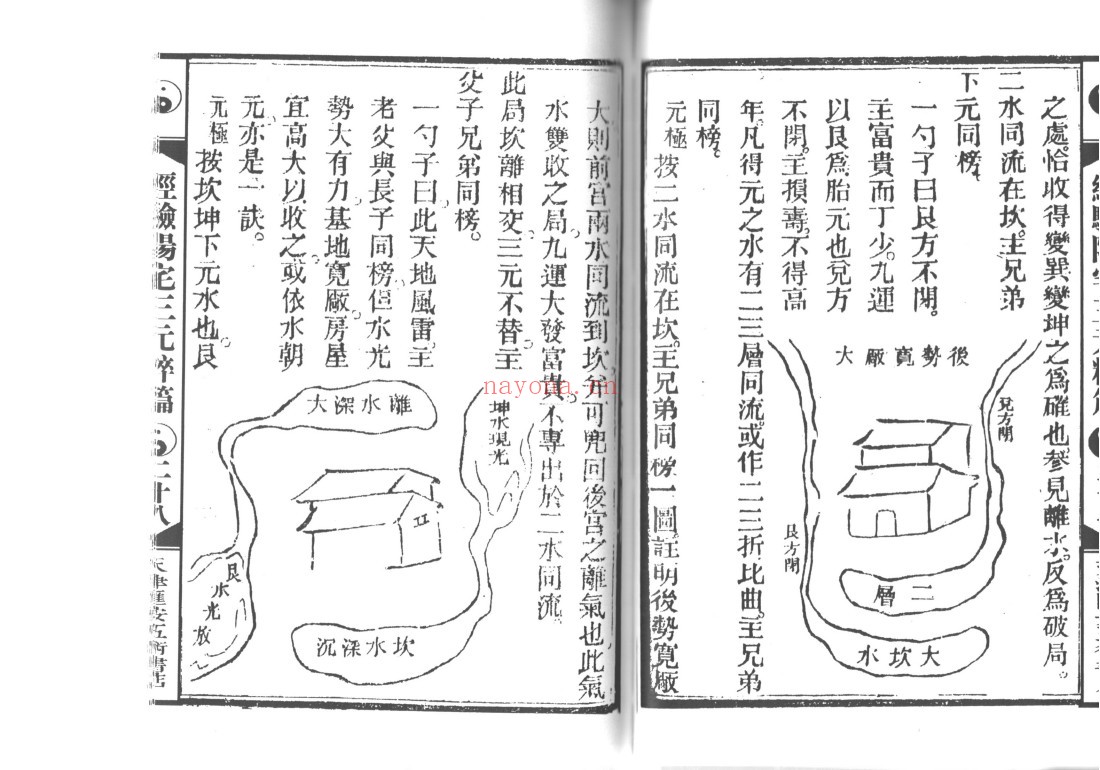 之處恰收得變巽變坤之爲確也參見離水反爲破局。
二水同流在坎。主兄弟
下元同榜。
一勺子曰艮方不閉。
主富貴而丁少。九運
以艮爲胎元也兌方
不閉。主損壽。不得高
年。凡得元之水有二三層同流。或作二三折比曲。主兄弟
同榜。
元極按二水同流在坎。主兄弟同榜一圖。註明後勢寬廠
後勢寬廠大
兌方閉
艮方閉
二層
大坎水
大則前宮兩水同流到坎。并可兜回後宮之離氣也。此氣
水雙收之局。九運大發富貴。不專出於二水同流。
此局坎離相交。三元不替。主
父子兄弟同榜。
一勺子曰。此天地風雷。主
老父與長子同榜。但水光
勢大有力。基地寬廠。房屋
宜高大以收之。或依水朝
元。亦是一訣。
元極按坎坤下元水也。艮
離水深大
坤水現光
艮水光放
坎水深沉
經驗陽宅三元粹篇
二十八
nayona.cn